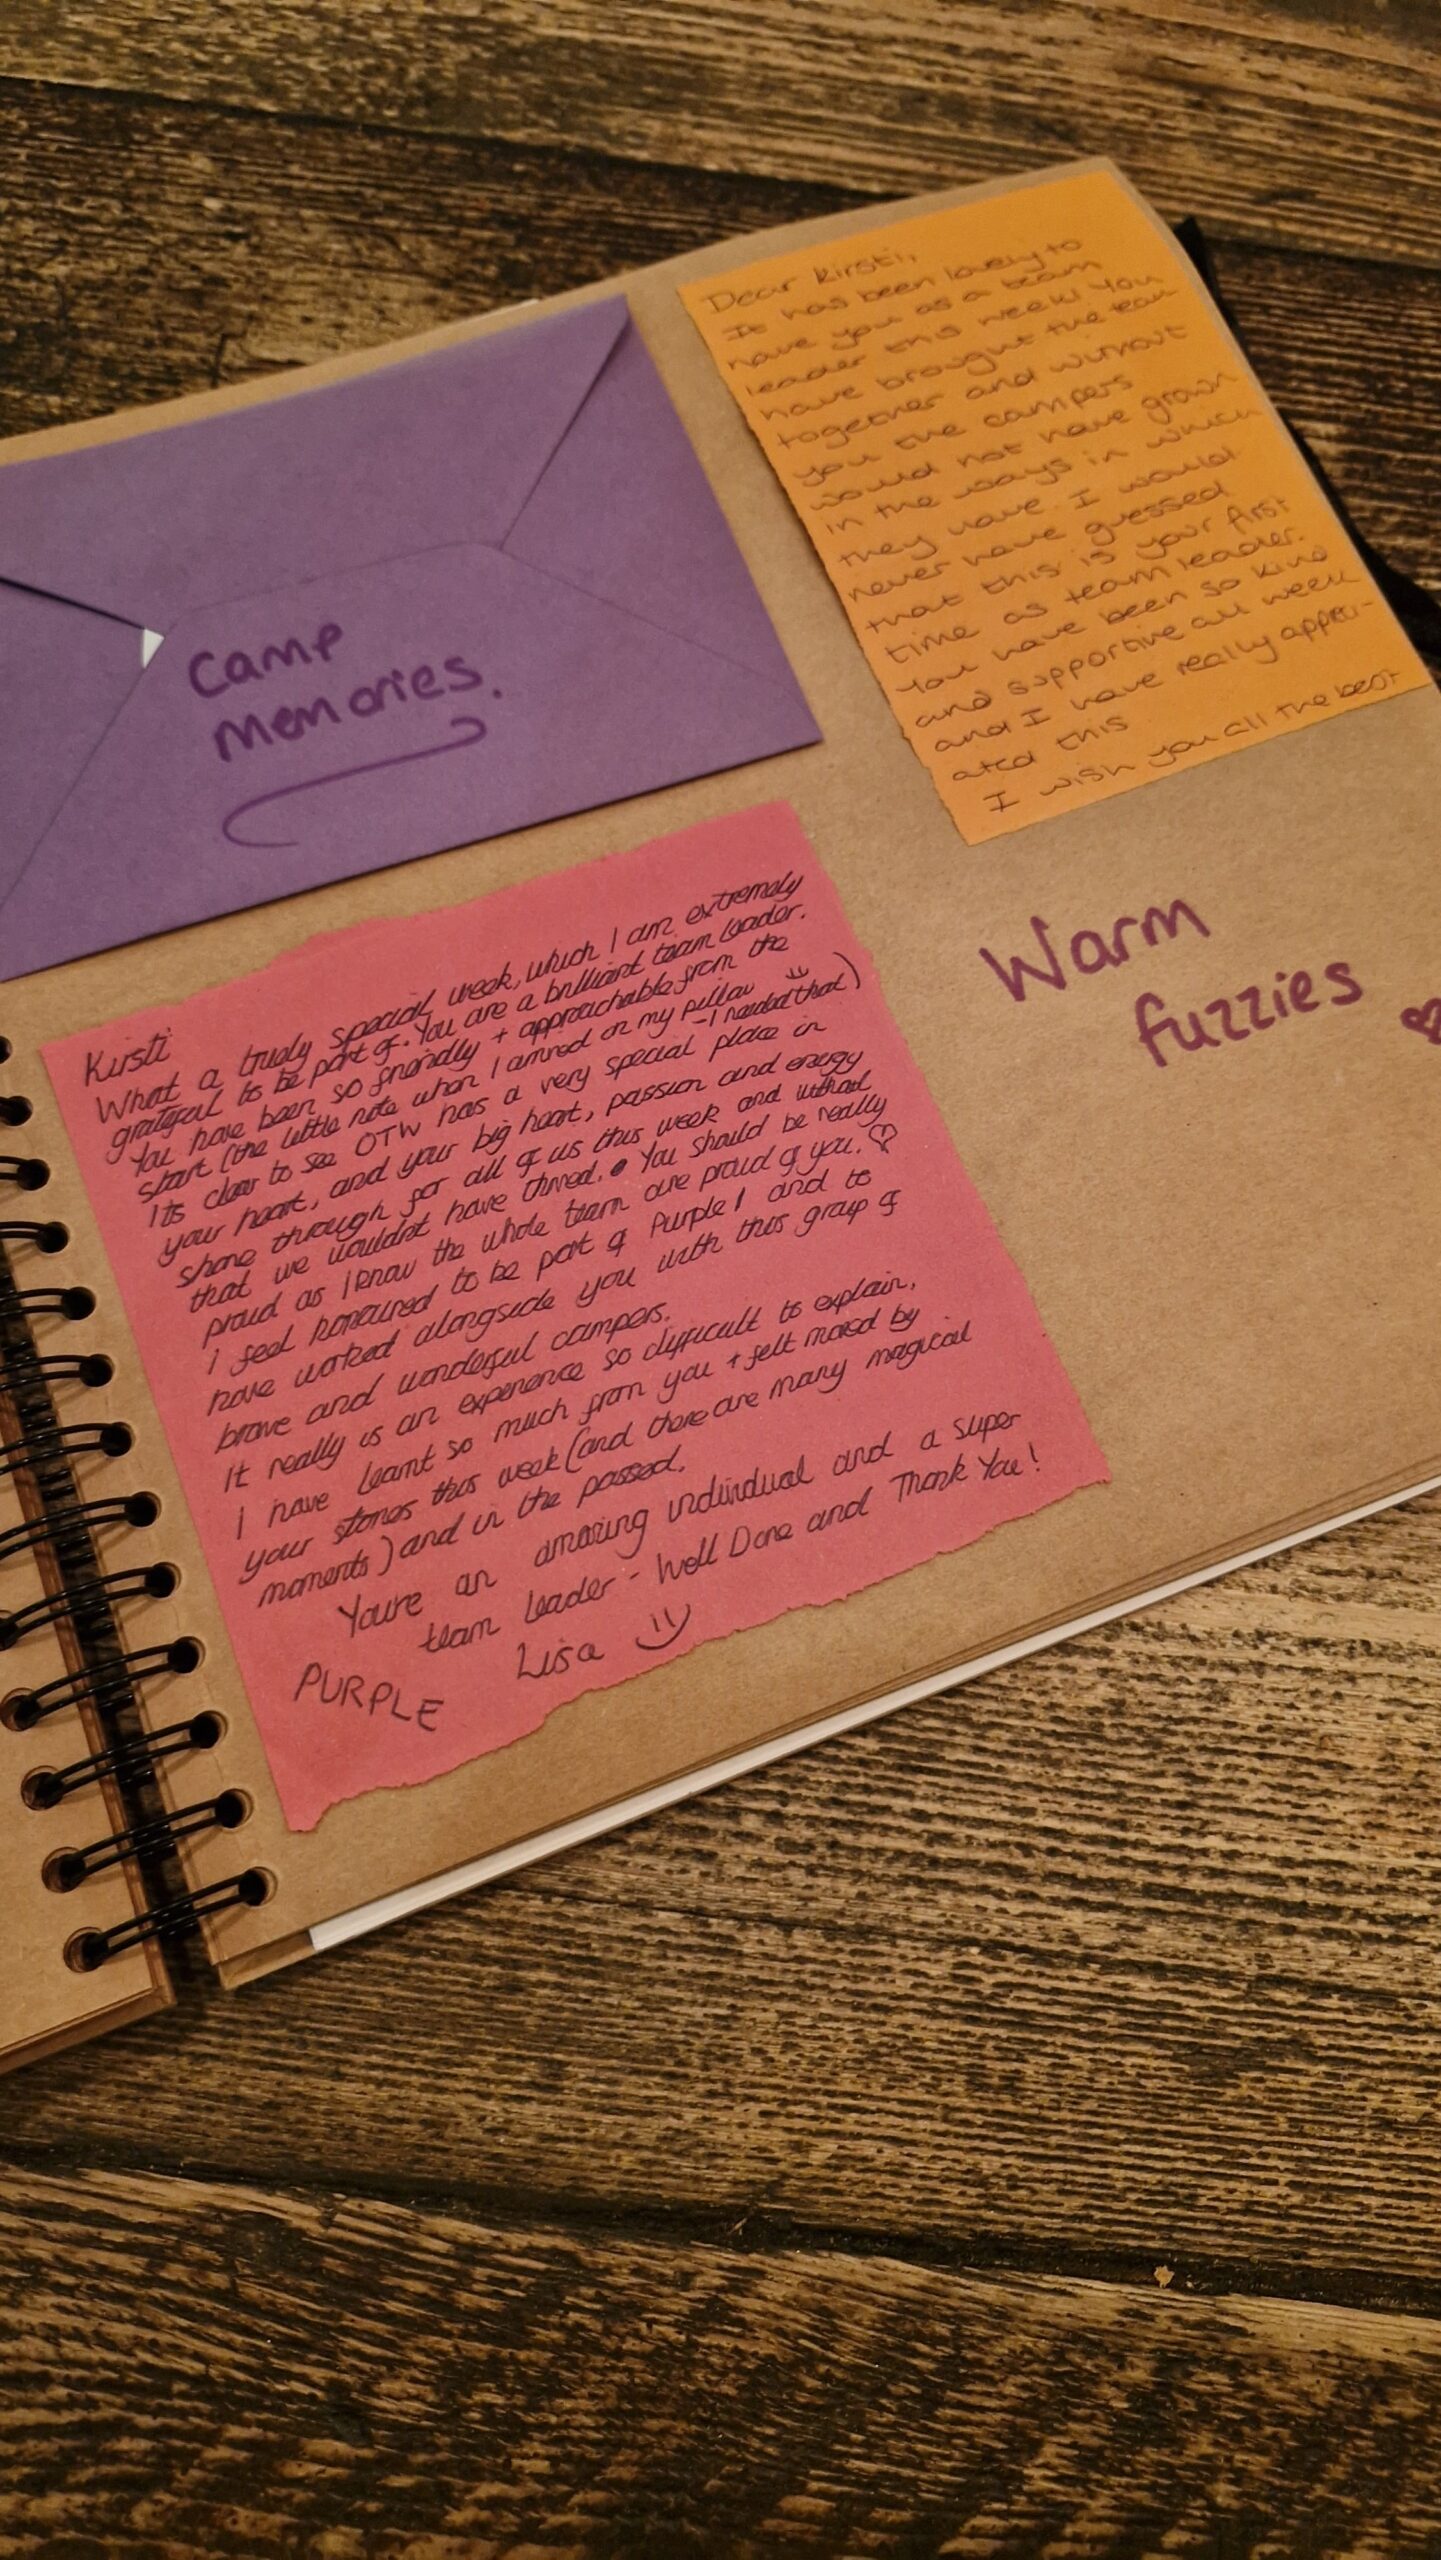 Camp
memories.
Dear Kirsti,
It has been lovely to
have you as a team
leader this week! You
have brought the team
together and without
you the campers
would not have grown
in the ways in which
they have. I would
never have guessed
that this is your first
time as team leader.
You have been so kind
and supportive all week
and I have really appreci-
ated this
I wish you all the best
Warm
fuzzies
Kirsti
What a truly special week, which I am extremely
grateful to be part of. You are a brilliant team leader.
You have been so friendly + approachable from the
start (the little note when I arrived on my pillow
- I needed that)
Its clear to see OTW has a very special place in
your heart, and your big heart, passion and energy
shone through for all of us this week and without
that we wouldnt have thrived. You should be really
proud as I know the whole team are proud of you.
I feel honoured to be part of Purple 1 and to
have worked alongside you with this group of
brave and wonderful campers.
It really is an experience so difficult to explain,
I have learnt so much from you + felt moved by
your stories this week (and there are many magical
moments) and in the passed.
Youre an amazing individual and a super
team leader - Well Done and Thank You!
Lisa
PURPLE